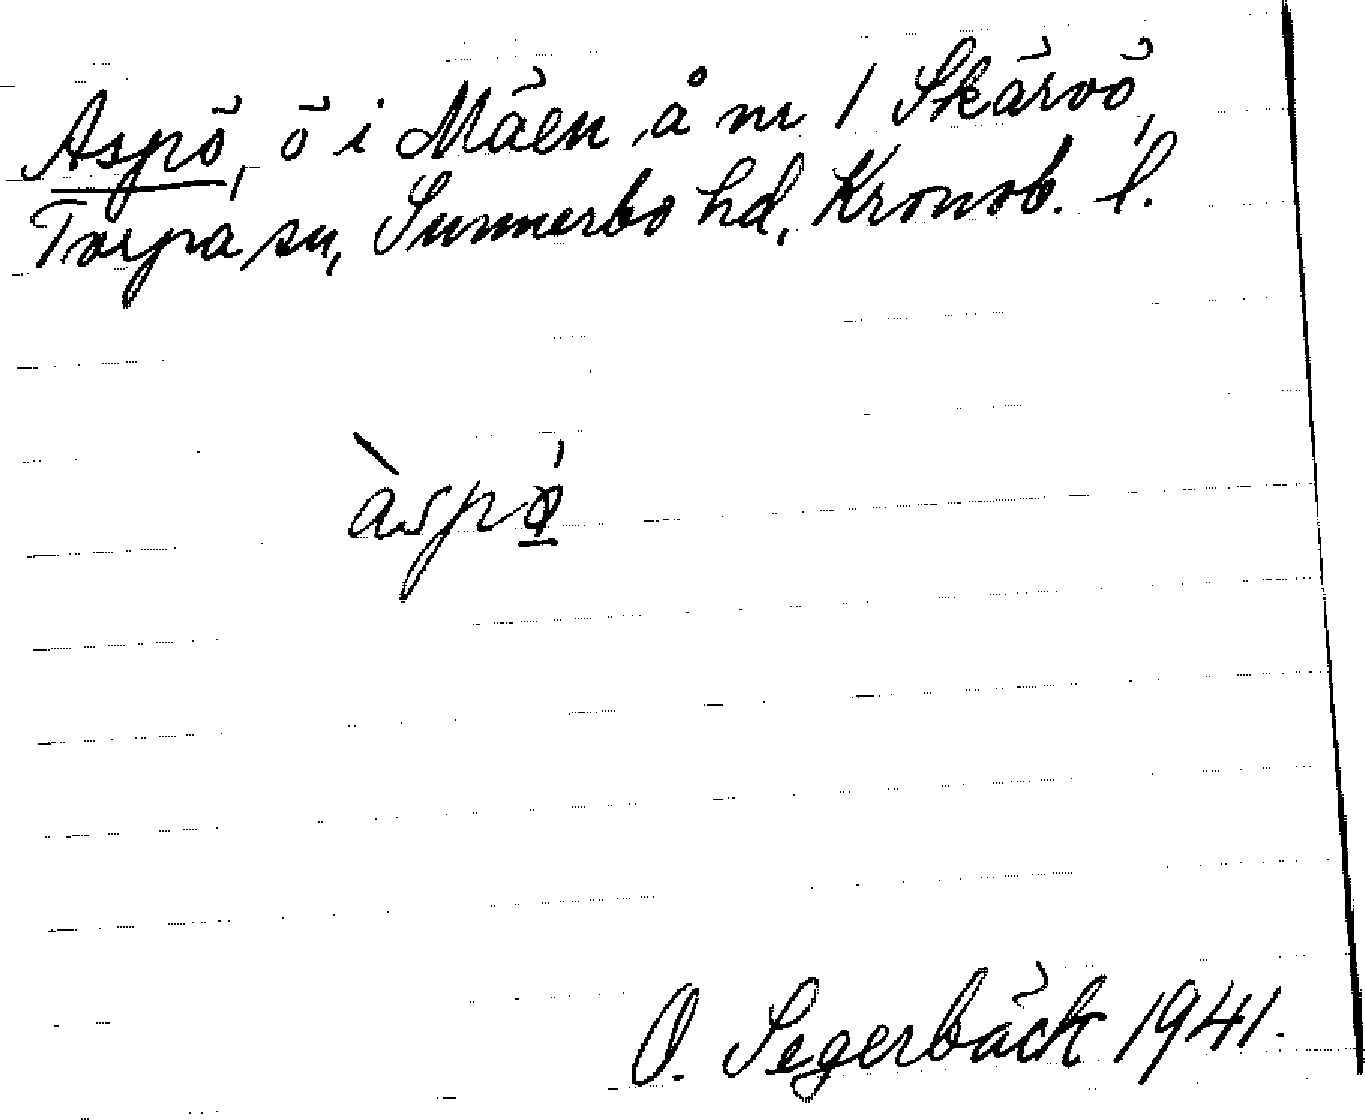 Aspö, ö i Mäen å nr 1 Skärvö,
Torpa sn, Sunnerbo hd, Kronob. l.
àspọ́
O. Segerbäck 1941.